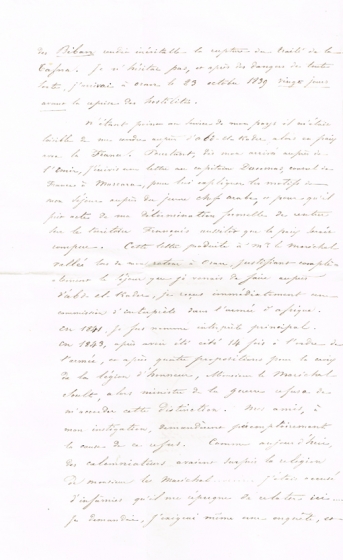 des Bibans rendit inévitable la rupture du traité de la
Tafna. Je n'hésitai pas, et après des dangers de toute
sorte, j'arrivai à Oran le 23 octobre 1839 vingt jours
avant la reprise des hostilités.
N'étant point au service de mon pays il m'était
loisible de me rendre auprès d'Abd-el-Kader, alors en paix
avec la France. Pourtant, dès mon arrivée auprès de
l'Emir, j'écrivis une lettre au capitaine Daumas, consul de
France à Mascara, pour lui expliquer les motifs de
mon séjour auprès du jeune chef arabe, et pour qu'il
prit acte de ma détermination formelle de rentrer
sur le territoire Français aussitôt que la paix serait
rompue. Cette lettre produite à Mr le Maréchal
Vallée lors de mon retour à Oran, justifiant complè-
tement le séjour que je venais de faire auprès
d'Abd-el-Kader, je reçus immédiatement une
commission d'interprète dans l'armée d'Afrique.
En 1841 je fus nommé interprète principal.
En 1843, après avoir été cité 14 fois à l'ordre de
l'armée, et après quatre propositions pour la croix
de la légion d'honneur, Monsieur le Maréchal
Soult, alors ministre de la guerre refusa de
m'accorder cette distinction. Mes amis, à
mon instigation, demandèrent péremptoirement
la cause de ce refus. Comme aujourd'hui,
des calomniateurs avaient surpris la religion
de monsieur le Maréchal ........ j'étais accusé
d'infamies qu'il me répugne de relater ici
Je demandai, j'exigeai même une enquête, et